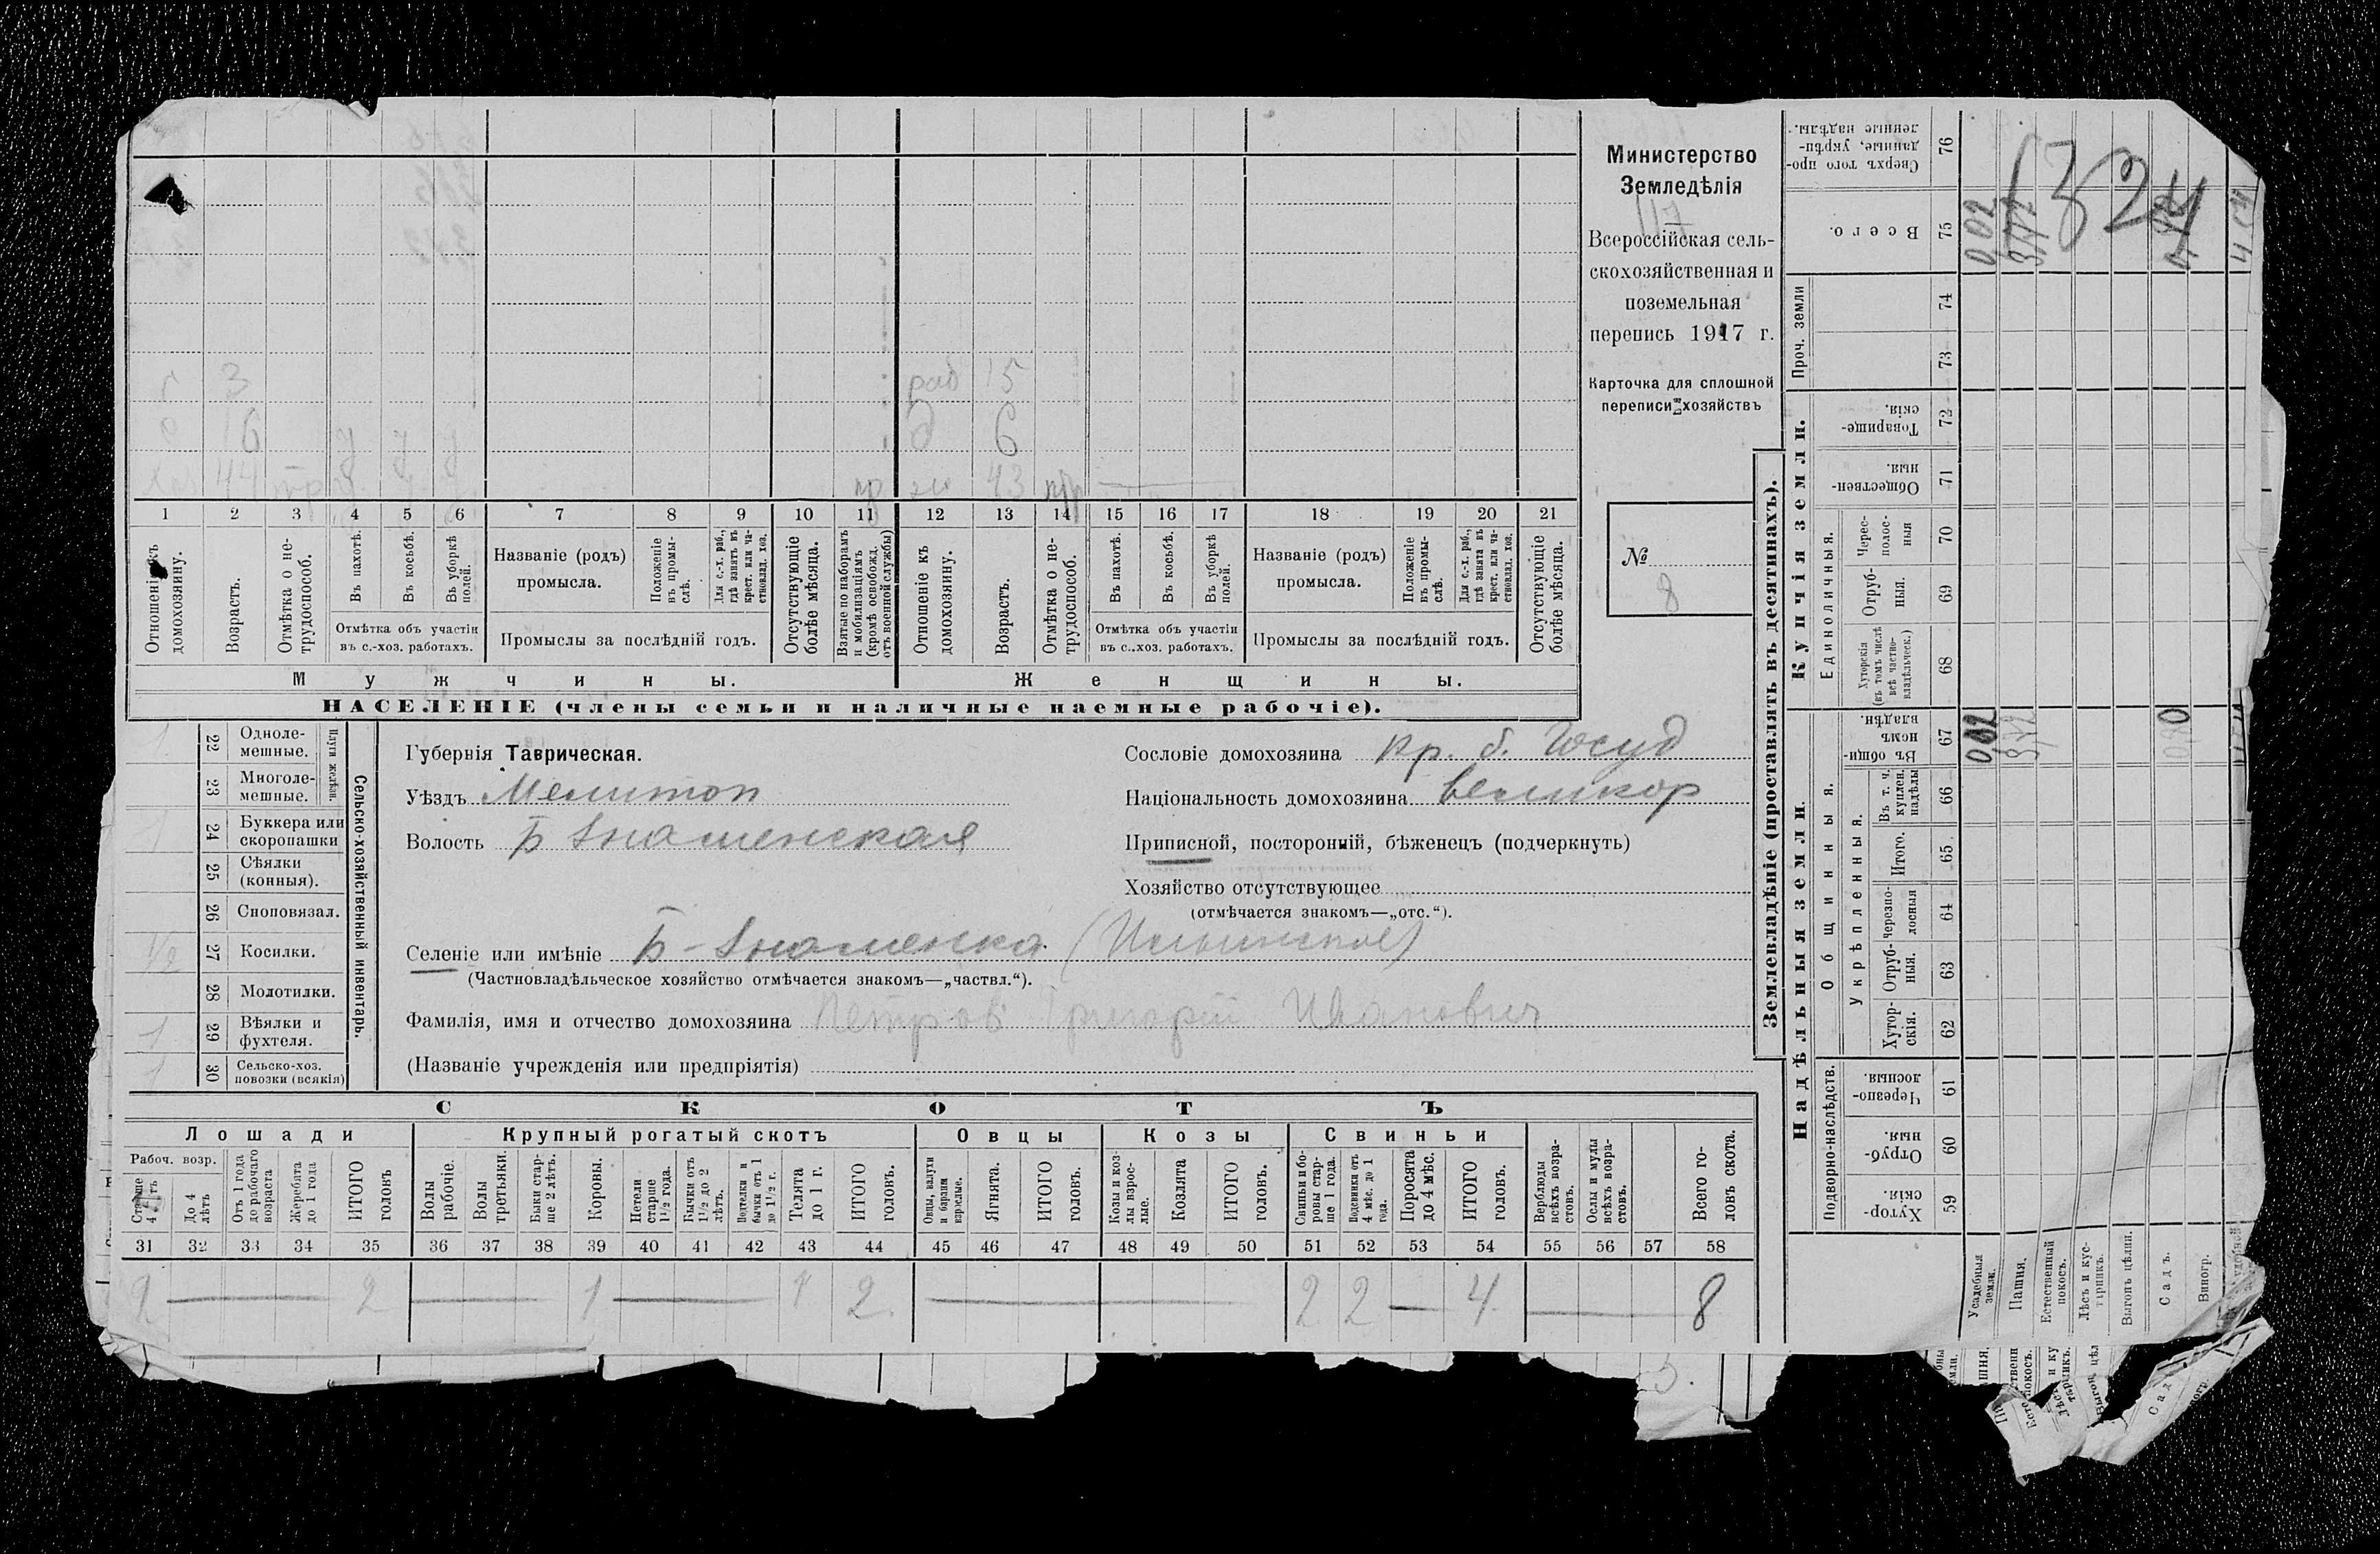 Министерство
Земледѣлія
117
Всероссійская сель-
скохозяйственная и
поземельная
перепись 1917 г.
Карточка для сплошной
переписи хозяйствъ
№
8
3 раб 15
16 у у у д 6
44 43
1 2 3 4 5 6 7 8 9 10 11 12 13 14 15 16 17 18 19 20 21
Отношеніе къ домохозяину.
Возрастъ.
Отмѣтка о не-трудоспособ.
Въ пахотѣ.
Въ косьбѣ.
Въ уборкѣ полей.
Отмѣтка объ участіи
въ с.-хоз. работахъ.
Названіе (родъ)
промысла.
Положеніе въ промы-слѣ.
Для с.-х. раб., гдѣ занятъ въ крест. или ча-стновлад. хоз.
Промыслы за послѣдній годъ.
Отсутствующіе болѣе мѣсяца.
Взятые по наборамъ и мобилизаціямъ (кромѣ освобожд. отъ военной службы)
Отношеніе къ домохозяину.
Возрастъ.
Отмѣтка о не-трудоспособ.
Въ пахотѣ.
Въ косьбѣ.
Въ уборкѣ полей.
Отмѣтка объ участіи
въ с.-хоз. работахъ.
Названіе (родъ)
промысла.
Положеніе въ промы-слѣ.
Для с.-х. раб., гдѣ занята въ крест. или ча-стновлад. хоз.
Промыслы за послѣдній годъ.
Отсутствующіе болѣе мѣсяца.
Мужчины.
Женщины.
НАСЕЛЕНІЕ (члены семьи и наличные наемные рабочіе).
1 22 Одноле-мешные.
23 Многоле-мешные.
Плуги желѣзн.
1 24 Буккера или скоропашки
25 Сѣялки (конныя).
26 Сноповязал.
1/2 27 Косилки.
28 Молотилки.
1 29 Вѣялки и фухтеля.
1 30 Сельско-хоз. повозки (всякія)
Сельско-хозяйственный инвентарь.
Губернія Таврическая.
Уѣздъ Мелитоп
Волость Б Знаменская
Сословіе домохозяина кр. б. Госуд
Національность домохозяина великор
Приписной, посторонній, бѣженецъ (подчеркнуть)
Хозяйство отсутствующее
(отмѣчается знакомъ—„отс.“).
Селеніе или имѣніе Б-Знаменка (Ильинское)
(Частновладѣльческое хозяйство отмѣчается знакомъ—„частвл.“).
Фамилія, имя и отчество домохозяина Петров Григорій Иванович
(Названіе учрежденія или предпріятія)
СКОТЪ
Лошади
Крупный рогатый скотъ
Овцы
Козы
Свиньи
Рабоч. возр.
Старше 4 лѣтъ
До 4 лѣтъ
Отъ 1 года до рабочаго возраста
Жеребята до 1 года
ИТОГО головъ
Волы рабочіе.
Волы третьяки.
Быки стар-ше 2 лѣтъ.
Коровы.
Нетели старше 1½ года.
Бычки отъ 1½ до 2 лѣтъ.
Подтелки и бычки отъ 1 до 1½ г.
Телята до 1 г.
ИТОГО головъ.
Овцы, валухи и бараны взрослые.
Ягнята.
ИТОГО головъ.
Козы и коз-лы взрос-лые.
Козлята
ИТОГО головъ.
Свиньи и бо-ровы стар-ше 1 года.
Подсвинки отъ 4 мѣс. до 1 года.
Поросята до 4 мѣс.
ИТОГО головъ.
Верблюды всѣхъ возра-стовъ.
Ослы и мулы всѣхъ возра-стовъ.
Всего го-ловъ скота.
31 32 33 34 35 36 37 38 39 40 41 42 43 44 45 46 47 48 49 50 51 52 53 54 55 56 57 58
2 — 2 — 1 — 1 2 — 2 2 — 4 — 8
Землевладѣніе (проставлять въ десятинахъ).
Надѣльныя земли
Купчія земли.
Проч. земли
Подворно-наслѣдств.
Общинныя.
Укрѣпленныя.
Единоличныя.
Хутор-скія. 59
Отруб-ныя. 60
Черезпо-лосныя. 61
Хутор-скія. 62
Отруб-ныя. 63
Черезпо-лосныя 64
Итого. 65
Въ т. ч. куплен. надѣлы 66
Въ общи-номъ владѣн. 67
Хуторскія (въ томъ числѣ всѣ частно-владѣльческ.) 68
Отруб-ныя. 69
Черес-полос-ныя 70
Обществен-ныя. 71
Товарище-скія. 72
73
74
Всего. 75
Сверхъ того про-данные, укрѣп-ленные надѣлы. 76
Усадебныя земли.
Пашня.
Естественный покосъ.
Лѣсъ и кус-тарникъ.
Выгонъ цѣлин.
Садъ.
Виногр.
002
324